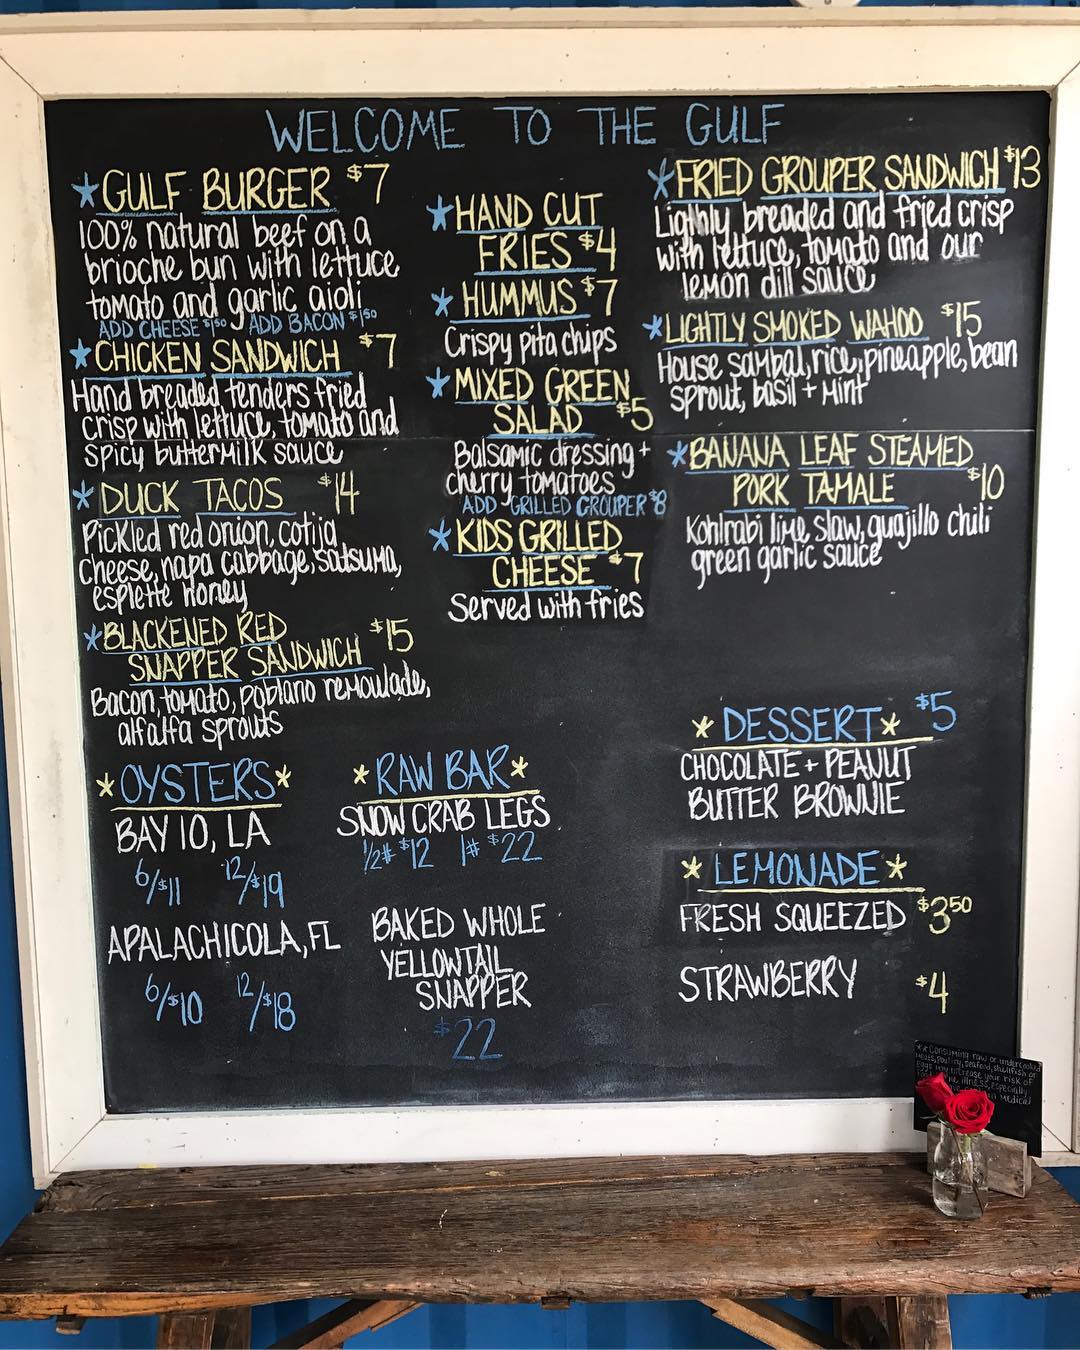 WELCOME TO THE GULF
*GULF BURGER $7
100% natural beef on a
brioche bun with lettuce
tomato and garlic aioli
ADD CHEESE $1.50 ADD BACON $1.50
*CHICKEN SANDWICH $7
Hand breaded tenders fried
crisp with lettuce, tomato and
spicy buttermilk sauce
*DUCK TACOS $14
Pickled red onion, cotija
cheese, napa cabbage, satsuma,
esplette honey
*BLACKENED RED
SNAPPER SANDWICH $15
Bacon, tomato, poblano remoulade,
alfalfa sprouts
*HAND CUT
FRIES $4
*HUMMUS $7
Crispy pita chips
*MIXED GREEN
SALAD $5
Balsamic dressing +
cherry tomatoes
ADD - GRILLED GROUPER $8
*KIDS GRILLED
CHEESE $7
Served with fries
*FRIED GROUPER SANDWICH $13
Ligthly breaded and fried crisp
with lettuce, tomato and our
lemon dill sauce
*LIGHTLY SMOKED WAHOO $15
House sambal, rice, pineapple, bean
sprout, basil + mint
*BANANA LEAF STEAMED
PORK TAMALE $10
Kohlrabi lime slaw, guajillo chili
green garlic sauce
*OYSTERS*
BAY 10, LA
6/$11 12/$19
APALACHICOLA, FL
6/$10 12/$18
*RAW BAR*
SNOW CRAB LEGS
1/2# $12 1# $22
BAKED WHOLE
YELLOWTAIL
SNAPPER
$22
*DESSERT* $5
CHOCOLATE + PEANUT
BUTTER BROWNIE
*LEMONADE*
FRESH SQUEEZED $3.50
STRAWBERRY $4
**Consuming raw or undercooked
meats, poultry, seafood, shellfish or
eggs may increase your risk of
illness, especially
medical